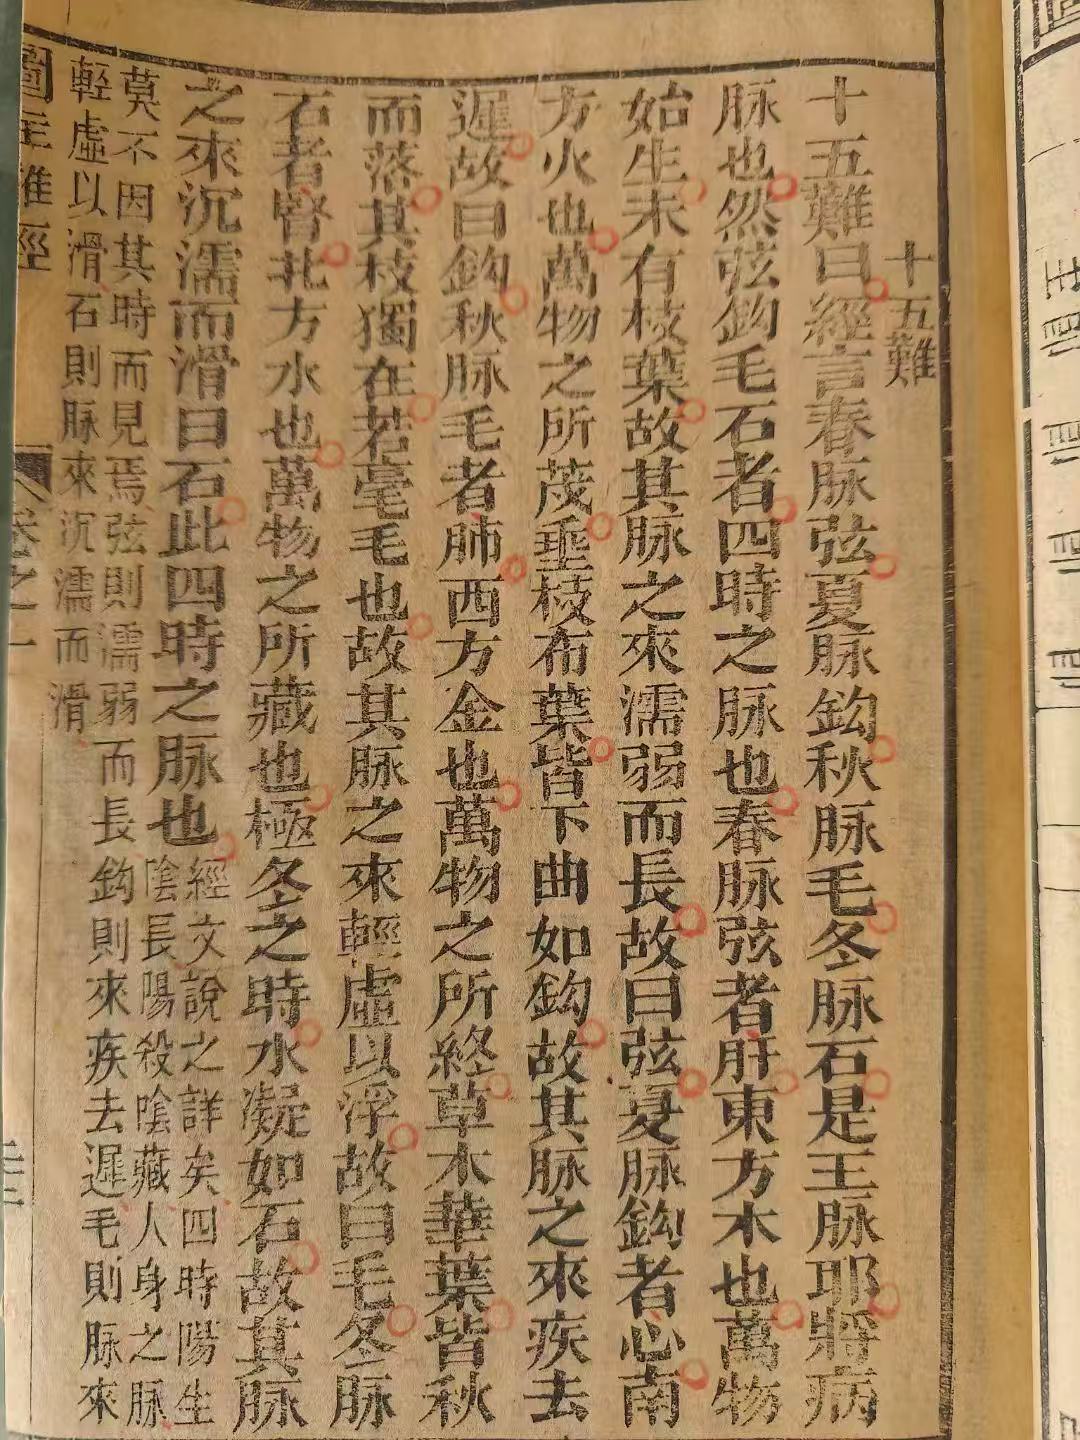 十五難
十五難曰經言春脉弦夏脉鈎秋脉毛冬脉石是王脉耶將病
脉也然弦鈎毛石者四時之脉也春脉弦者肝東方木也萬物
始生未有枝葉故其脉之來濡弱而長故曰弦夏脉鈎者心南
方火也萬物之所茂垂枝布葉皆下曲如鈎故其脉之來疾去
遲故曰鈎秋脉毛者肺西方金也萬物之所終草木華葉皆秋
而落其枝獨在若毫毛也故其脉之來輕虛以浮故曰毛冬脉
石者腎北方水也萬物之所藏也極冬之時水凝如石故其脉
之來沉濡而滑曰石此四時之脉也經文說之詳矣四時陽生
陰長陽殺陰藏人身之脉
莫不因其時而見焉弦則濡弱而長鈎則來疾去遲毛則脉來
輕虛以滑石則脉來沉濡而滑
圖主難經
卷之一